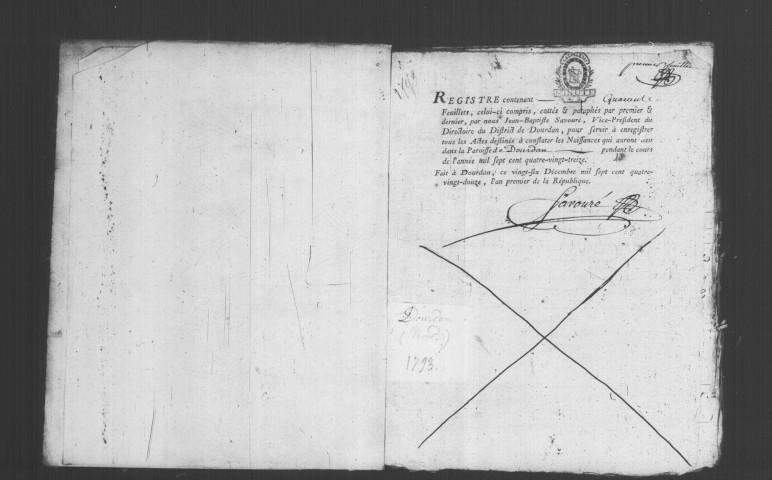 premier feuillet
1793
REGISTRE contenant Quarante
Feuillets, celui-ci compris, cottés & paraphés par premier &
dernier, par nous Jean-Baptiste Savouré, Vice-Président du
Directoire du District de Dourdan, pour servir à enregistrer
tous les Actes destinés à constater les Naissances qui auront lieu
dans la Paroisse de Dourdan pendant le cours
de l'année mil sept cent quatre-vingt-treize.
Fait à Dourdan, ce vingt-six Décembre mil sept cent quatre-
vingt-douze, l'an premier de la République.
Savouré
Dourdan
1793.